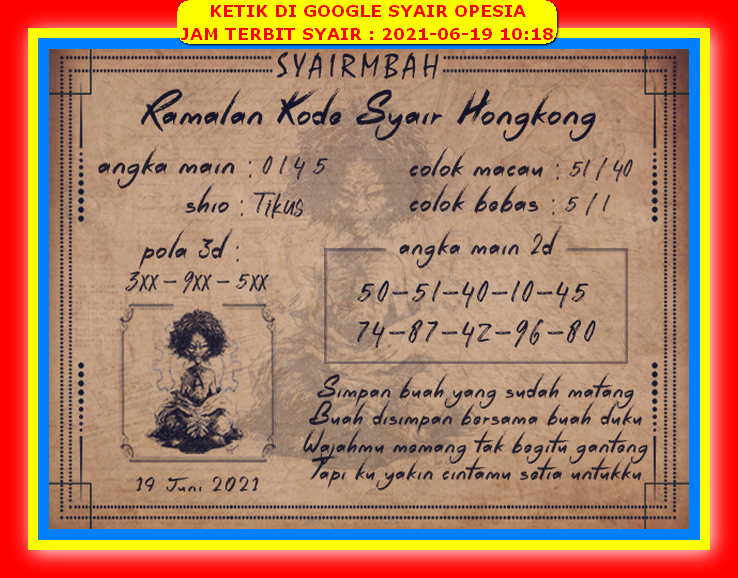 KETIK DI GOOGLE SYAIR OPESIA
JAM TERBIT SYAIR : 2021-06-19 10:18
SYAIRMBAH
Ramalan Kode Syair Hongkong
angka main : 0 1 4 5
colok macau : 51 / 40
shio : Tikus
colok bebas : 5 / 1
pola 3d :
3XX - 9XX - 5XX
angka main 2d
50-51-40-10-45
74-87-42-96-80
Simpan buah yang sudah matang
Buah disimpan bersama buah duku
Wajahmu memang tak begitu ganteng
Tapi ku yakin cintamu setia untukku
19 Juni 2021